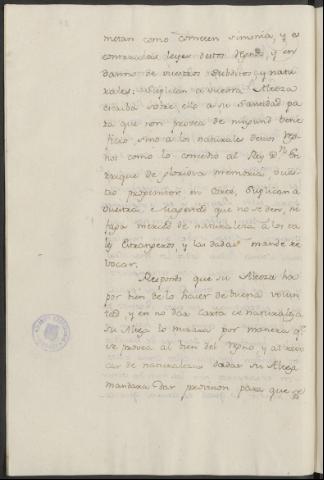 metan como cometen simonia, y es
contra las leyes destos Reynos, y en
danno de vuestros subditos, y natu
rales: suplican a vuestra Alteza
escriba sobre ello a su Santidad pa
ra que non provea de ningund bene
ficio, sino a los naturales destos Rey
nos como lo concedio al Rey Dn. En
rrique de gloriosa memoria, vues
tro progenitor en Suplican a
vuestra e Magestad que no se den, ni
faga merced de naturaleza a los ta
les Extrangeros, y las dadas mande re
vocar.
Responde que su Alteza ha
por bien de lo hacer de buena volun
tad, y en no dar carta de naturaleza
su Alteza lo mirara por manera qe.
se provea al bien del Reyno, y al revo
car de naturalezas dadas su Alteza
mandara dar provision para que se